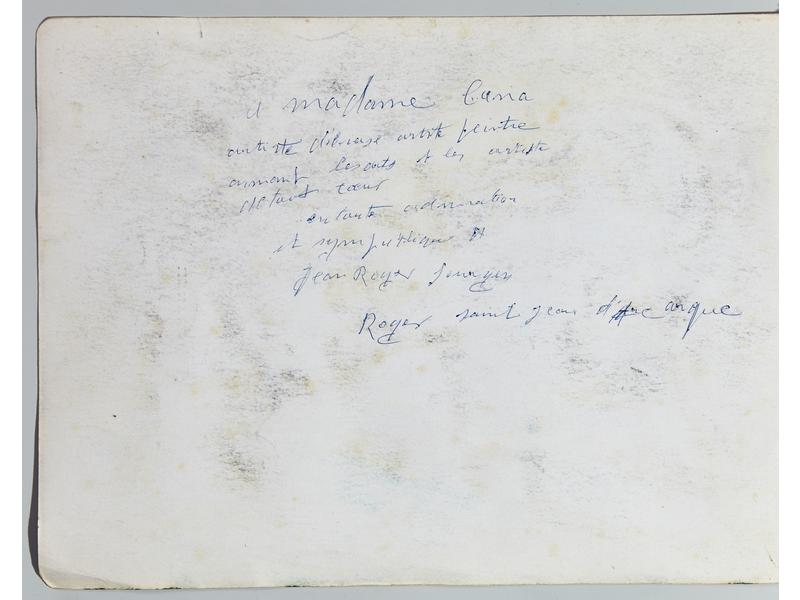 a madame Cana
artiste artiste peintre
aimant les arts et les artiste
de tout cœur
en toute admiration
et sympathique
Jean Roger Sourgen
Roger saint Jean d'